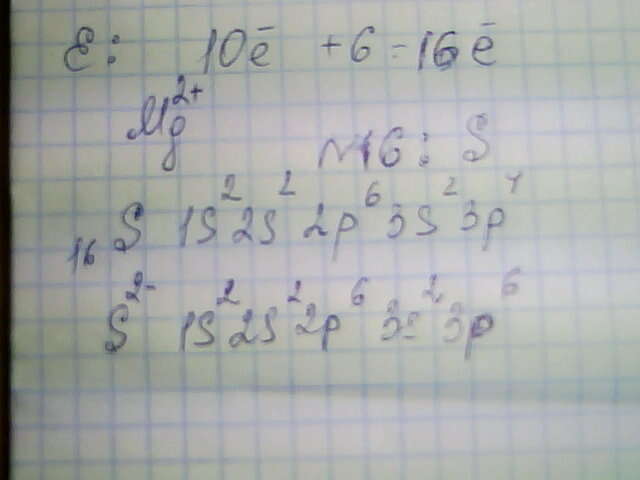 Э: 10ē +6=16ē
Mg²⁺
N16: S
₁₆S 1s²2s²2p⁶3s²3p⁴
S²⁻ 1s²2s²2p⁶3s²3p⁶